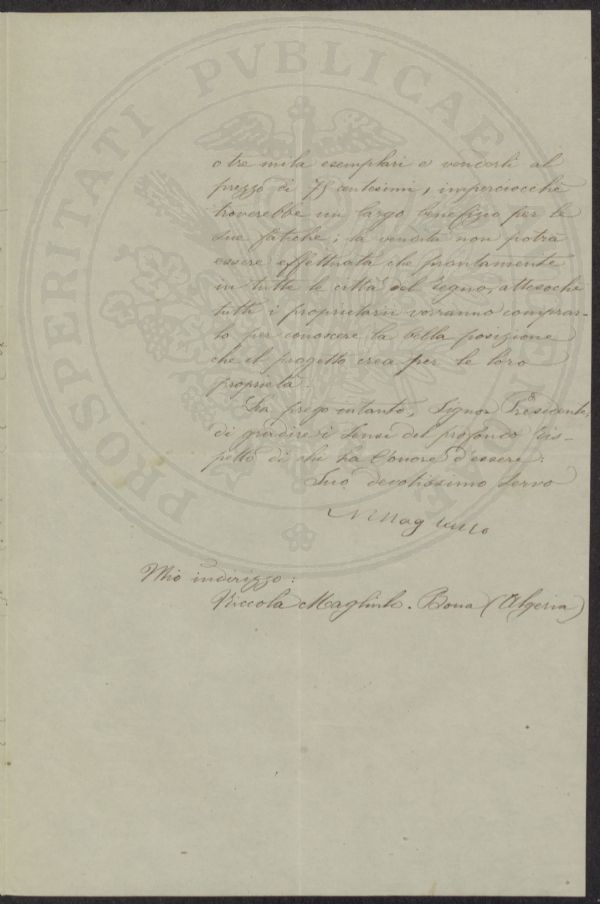 PROSPERITATI PVBLICAE
o tre mila esemplari e venderli al
prezzo di 75 centesimi, imperciocchè
troverebbe un largo benefizio per le
sue fatiche; la vendita non potrà
essere effettuata che prontamente
in tutte le città del regno, attesochè
tutti i proprietarii vorranno comprar-
lo per conoscere la bella posizione
che il progetto crea per le loro
proprietà.
La prego intanto, Signor Presidente,
di gradire i sensi del profondo ris-
petto di chi ha l'onore d'essere:
Suo devotissimo servo
Mio indirizzo:
Niccola - Bona (Algeria)